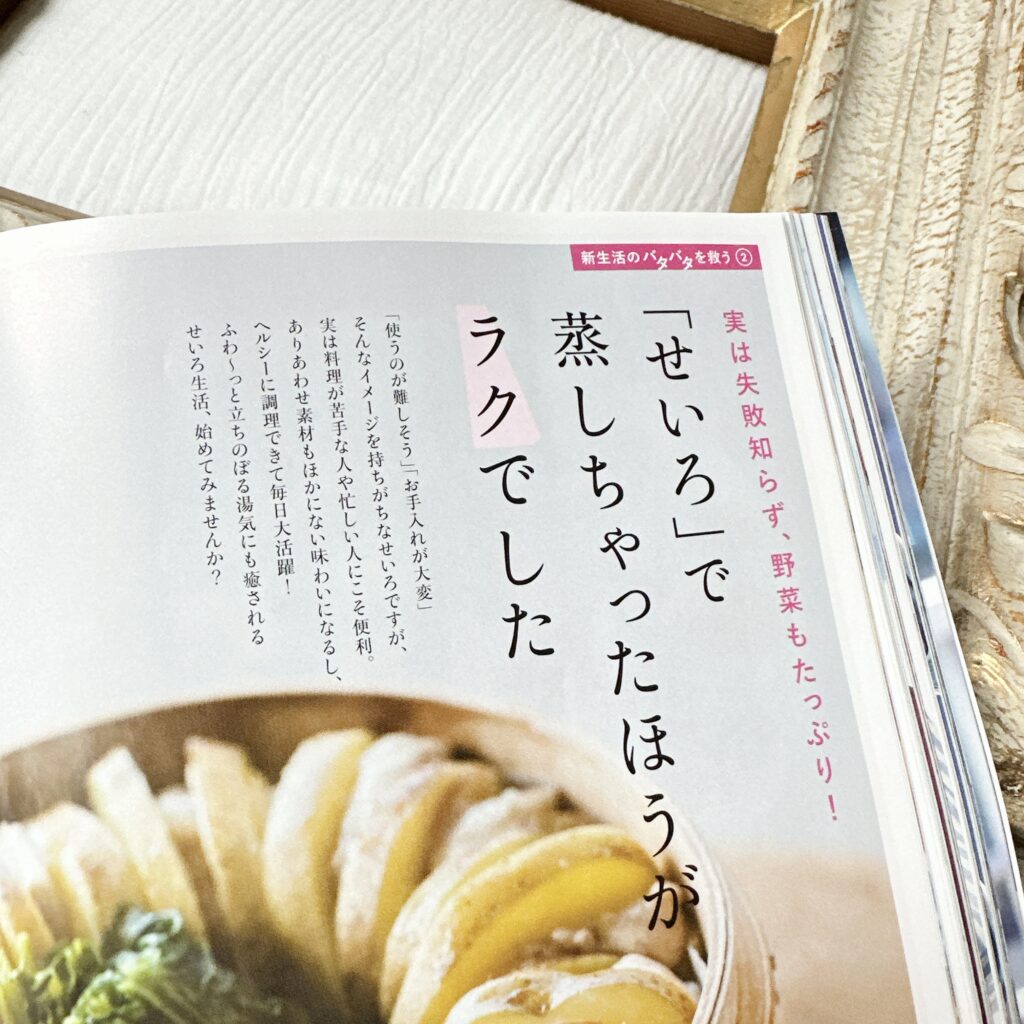 新生活のバタバタを救う②
実は失敗知らず、野菜もたっぷり！
「せいろ」で
蒸しちゃったほうが
ラクでした
「使うのが難しそう」「お手入れが大変」
そんなイメージを持ちがちなせいろですが、
実は料理が苦手な人や忙しい人にこそ便利。
ありあわせ素材もほかにない味わいになるし、
ヘルシーに調理できて毎日大活躍！
ふわ〜っと立ちのぼる湯気にも癒される
せいろ生活、始めてみませんか？